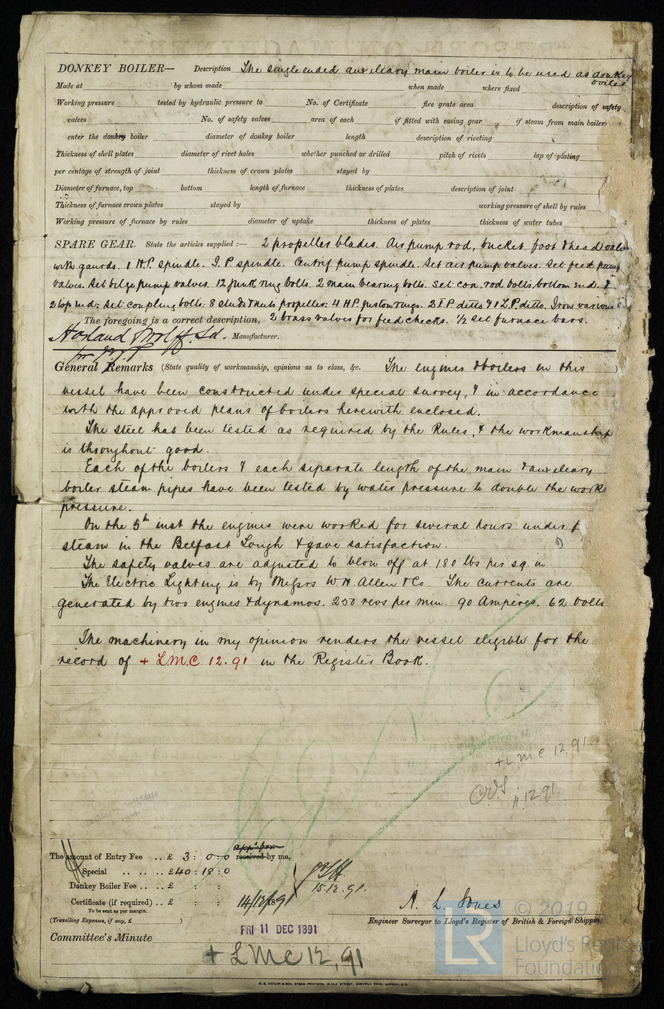 DONKEY BOILER— Description The single ended auxiliary main boiler is to be used as donkey
boiler
Made at by whom made when made where fixed
Working pressure tested by hydraulic pressure to No. of Certificate fire grate area description of safety
valves No. of safety valves area of each if fitted with easing gear if steam from main boilers
enter the donkey boiler diameter of donkey boiler length description of riveting
Thickness of shell plates diameter of rivet holes whether punched or drilled pitch of rivets lap of plating
per centage of strength of joint thickness of crown plates stayed by
Diameter of furnace, top bottom length of furnace thickness of plates description of joint
Thickness of furnace crown plates stayed by working pressure of shell by rules
Working pressure of furnace by rules diameter of uptake thickness of plates thickness of water tubes
SPARE GEAR. State the articles supplied :— 2 propeller blades. Air pump rod, bucket, foot & head valve
with gaurds. 1 H.P. spindle. I.P spindle. Centrif pump spindle. Set air pump valves. Set feed pump
valves. Set bilge pump valves. 12 junk ring bolts. 2 main bearing bolts. Set con. rod bolts bottom end. &
2 top end. Set coupling bolts. 8 studs & nuts propeller. 4 H.P. piston rings. 2 I.P ditto & 1 L.P ditto. Iron various
The foregoing is a correct description, 2 brass valves for feed checks. ½ set furnace bars.
Harland & Wolff Ld. Manufacturer.
General Remarks (State quality of workmanship, opinions as to class, &c. The engines & boilers in this
vessel have been constructed under special survey, & in accordance
with the approved plans of boilers herewith enclosed.
The steel has been tested as required by the Rules, & the workmanship
is throughout good.
Each of the boilers & each separate length of the main & auxiliary
boiler steam pipes have been tested by water pressure to double the work
pressure.
On the 5th inst the engines were worked for several hours under f
steam in the Belfast Lough & gave satisfaction.
The safety valves are adjusted to blow off at 180 lbs per sq. in
The Electric Lighting is by Messrs W H Allen & Co. The currents are
generated by two engines & dynamos. 250 revs per min 90 Amperes. 62 volts
The machinery in my opinion renders the vessel eligible for the
record of + LMC 12.91 in the Register Book.
+ LMC 12.91
12 91
The amount of Entry Fee .. £ 3 : 0 : 0 received by me,
Special .. .. .. £ 40 : 18 : 0
Donkey Boiler Fee .. .. £ : :
Certificate (if required) .. £ : : 14/12/1891
15.12.91.
To be sent as per margin.
(Travelling Expenses, if any, £ )
A. L. Jones
Engineer Surveyor to Lloyd's Register of British & Foreign Shipping
FRI 11 DEC 1891
Committee's Minute
+ LMC 12,91
© 2019
LR
Lloyd's Register
Foundation